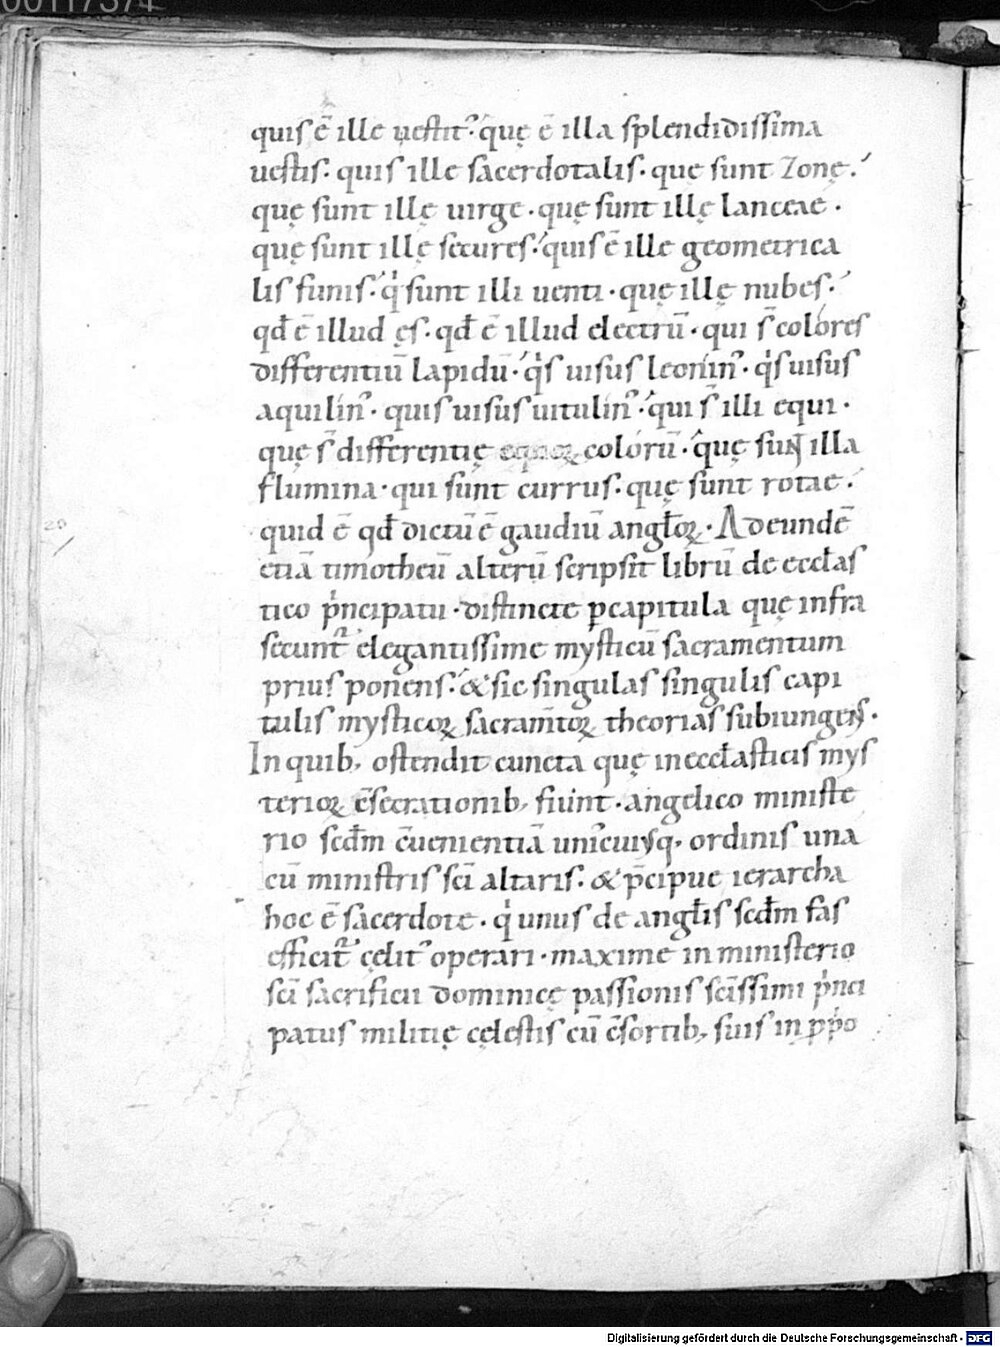 00117374
quis ē ille uestit᾿. quę ē illa splendidissima
uestis. quis ille sacerdotalis. quę sunt zonę.
quę sunt illę uirgę. quę sunt illę lanceae.
quę sunt illę secures. quis ē ille geometrica
lis funis. qͥ sunt illi uenti. quę illę nubes.
qđ ē illud ęs. qđ ē illud electrū. qui s̄ colores
differentiū lapidū. qͥs uisus leonin᾿. qͥs uisus
aquilin᾿. quis uisus uitulin᾿. qui s̄ illi equi.
quę s̄ differentię equoꝝ colorū. quę sunt illa
flumina. qui sunt currus. quę sunt rotae.
quid ē qđ dictū ē gaudiū angl̄oꝝ. Ad eundē
etiā timotheū alterū scripsit librū de eccl̄as
tico pͥncipatu. distincte ꝑ capitula quę infra
secunt᾿ elegantissime mysticū sacramentum
prius ponens. & sic singulas singulis capi
tulis mysticoꝝ sacram̄toꝝ theorias subiungens.
In quib; ostendit cuncta quę in eccl̄asticis mys
terioꝝ c̄secrationib; fiunt. angelico ministe
rio scd̄m c̄uenientiā uni᾿cuiusq; ordinis una
cū ministris sc̄i altaris. & p̄cipue ierarcha
hoc ē sacerdote. qͥ unus de angl̄is scd̄m fas
efficit᾿ cęlit᾿ operari. maxime in ministerio
sc̄i sacrificii dominicę passionis sc̄issimi pͥnci
patus militię cęlestis cū c̄sortib; suis in ꝓpͥo
20
Digitalisierung gefördert durch die Deutsche Forschungsgemeinschaft - DFG